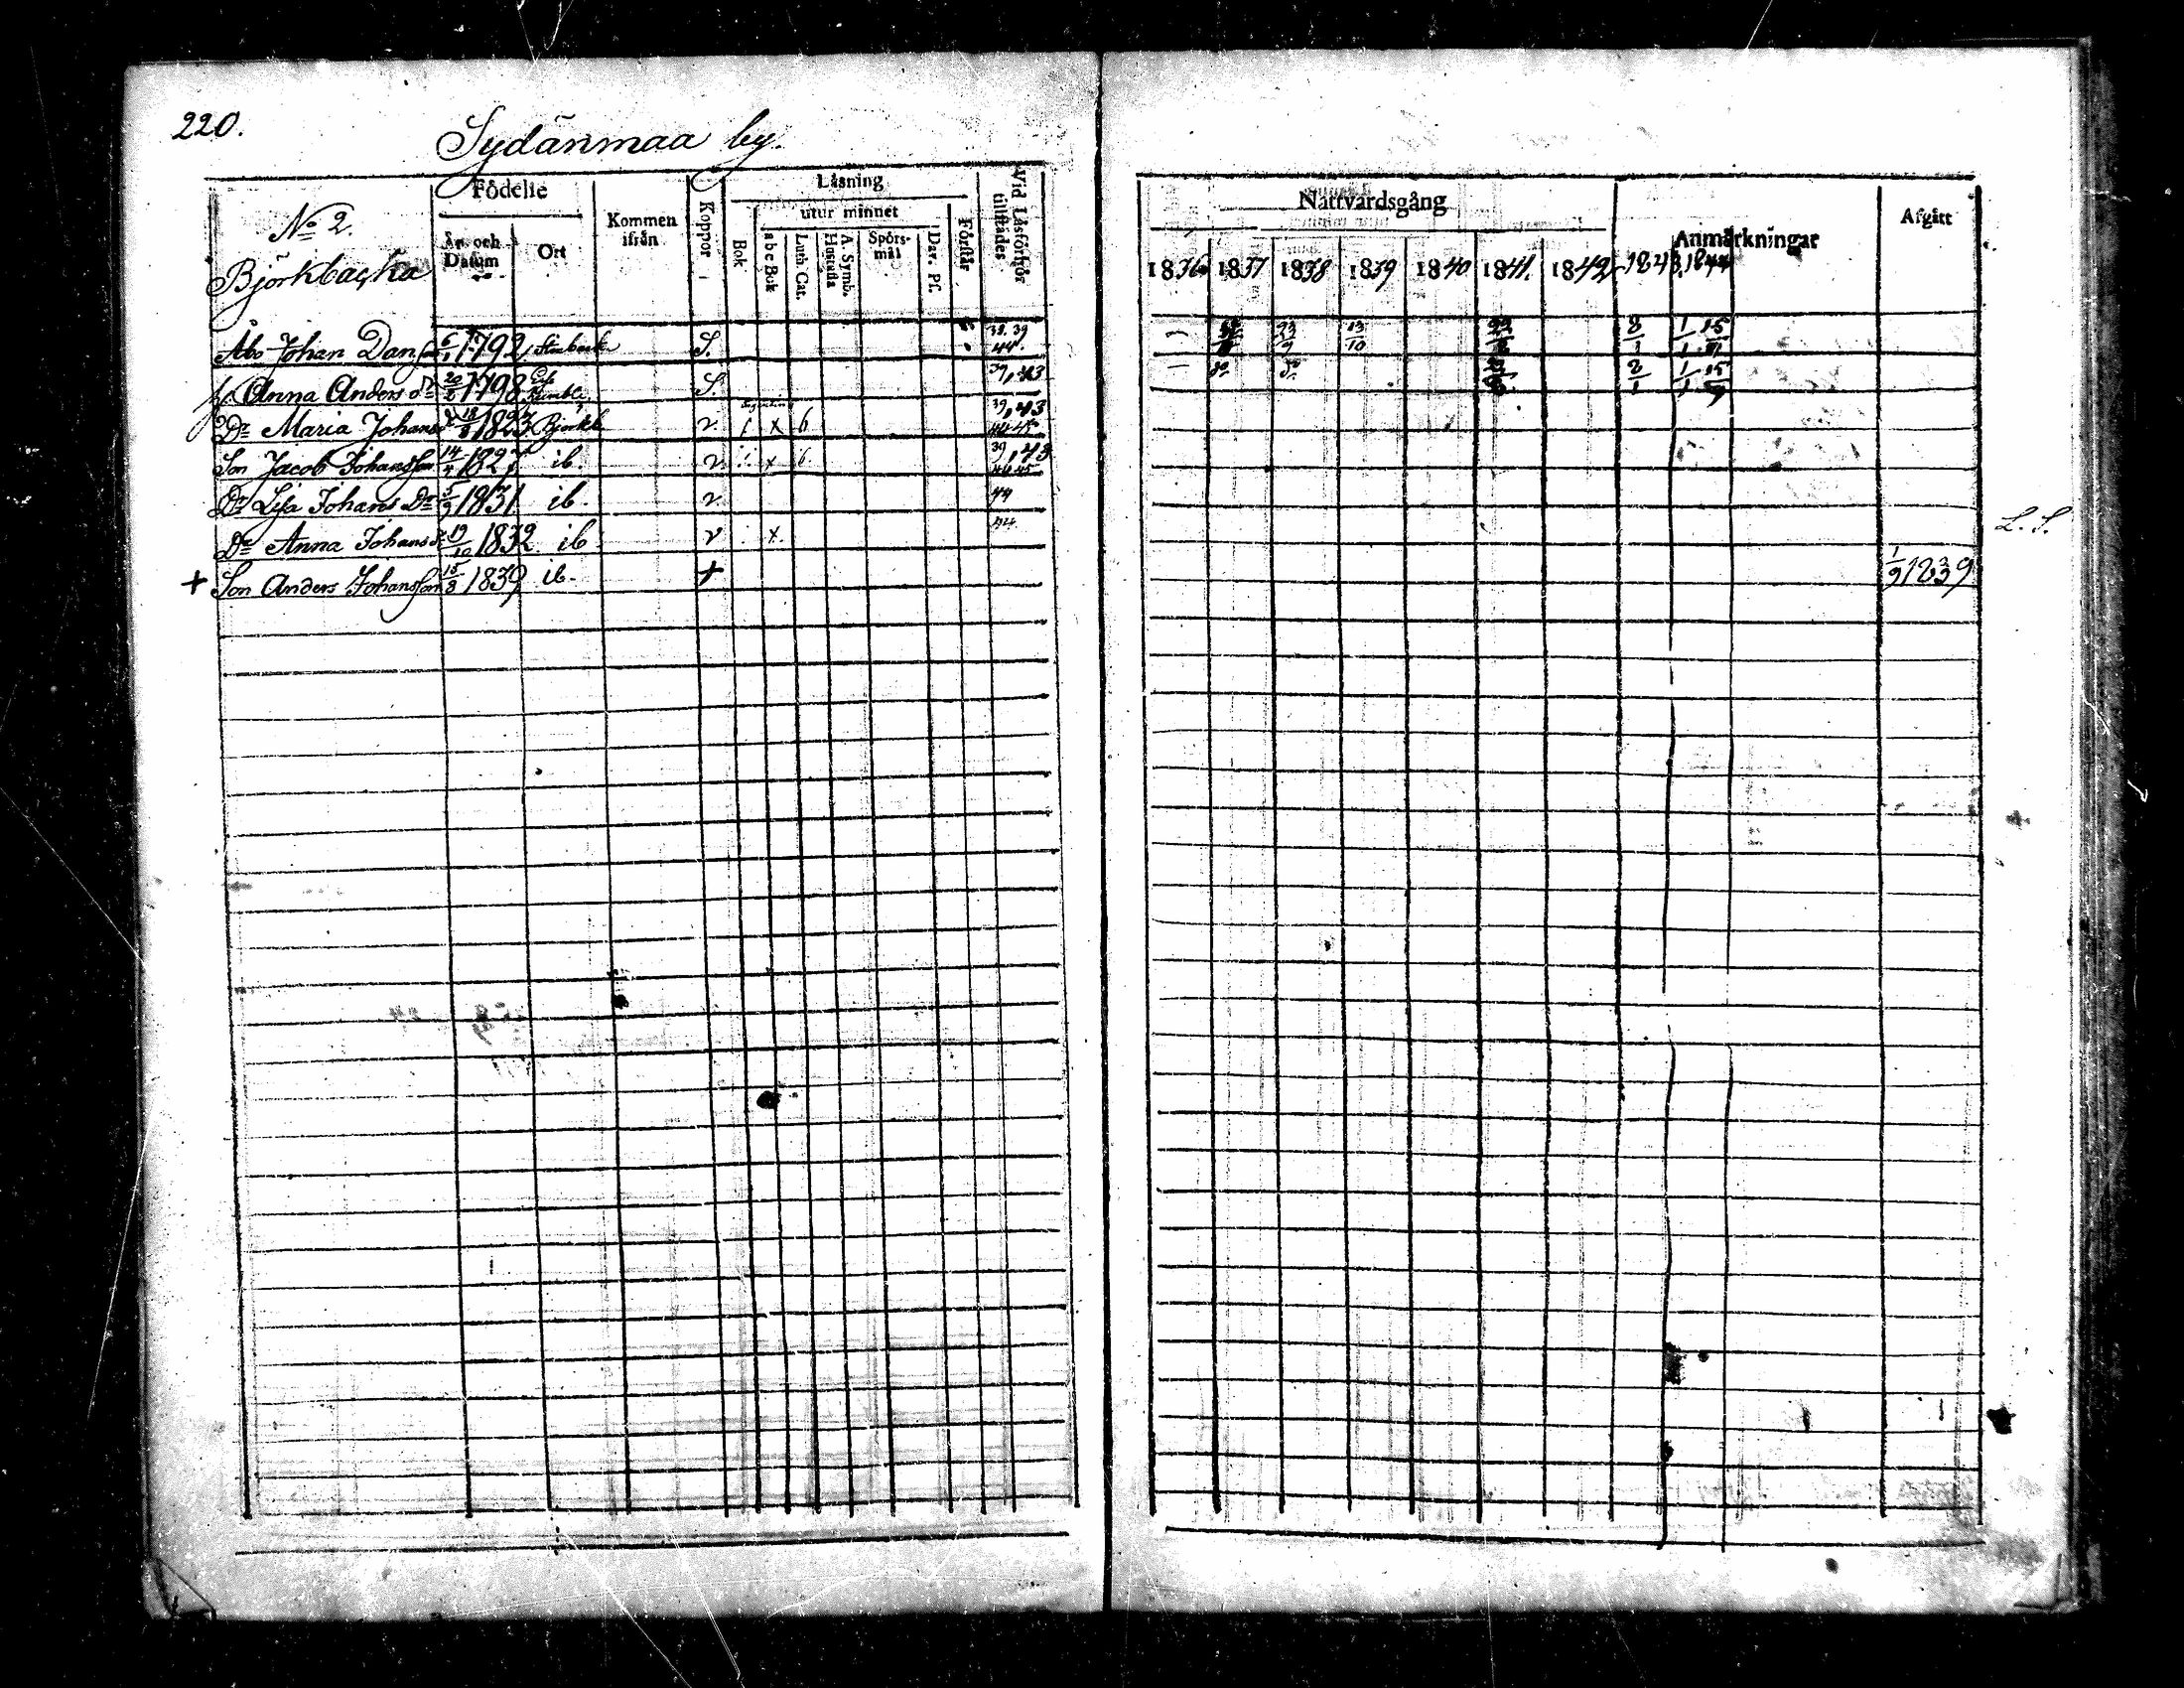 220.
Sydänmaa by.
No 2.
Björkbacka
Födelse
År och Datum
Ort
Kommen ifrån
Koppor
Läsning
utur minnet
Bok
abc Bok
Luth. Cat.
A. Symb. Hustafla
Spörs-mål
Dav. Ps.
Förstår
Vid Läsförhör tillstädes
Åbo Johan Dan.son 6/1 1792 S. 38. 39 44.
h. Anna Anders dr 20/2 1798 S. 39, 43
Dr Maria Johans dr 18/8 1823 Björkb v x b 39, 43 44 45
Son Jacob Johansson 14/4 1827 ib. v x b 39, 43 44 45
Dr Lisa Johans Dr 5/9 1831 ib. v 44
Dr Anna Johans d. 19/10 1832 ib v x
+ Son Anders Johansson 15/8 1839 ib. +
Nattvardsgång
1836 1837 1838 1839 1840 1841. 1842 1843, 1844
Anmärkningar
Afgått
23/9 13/10 8/1
do do 8/1
L. S.
1/9 1839